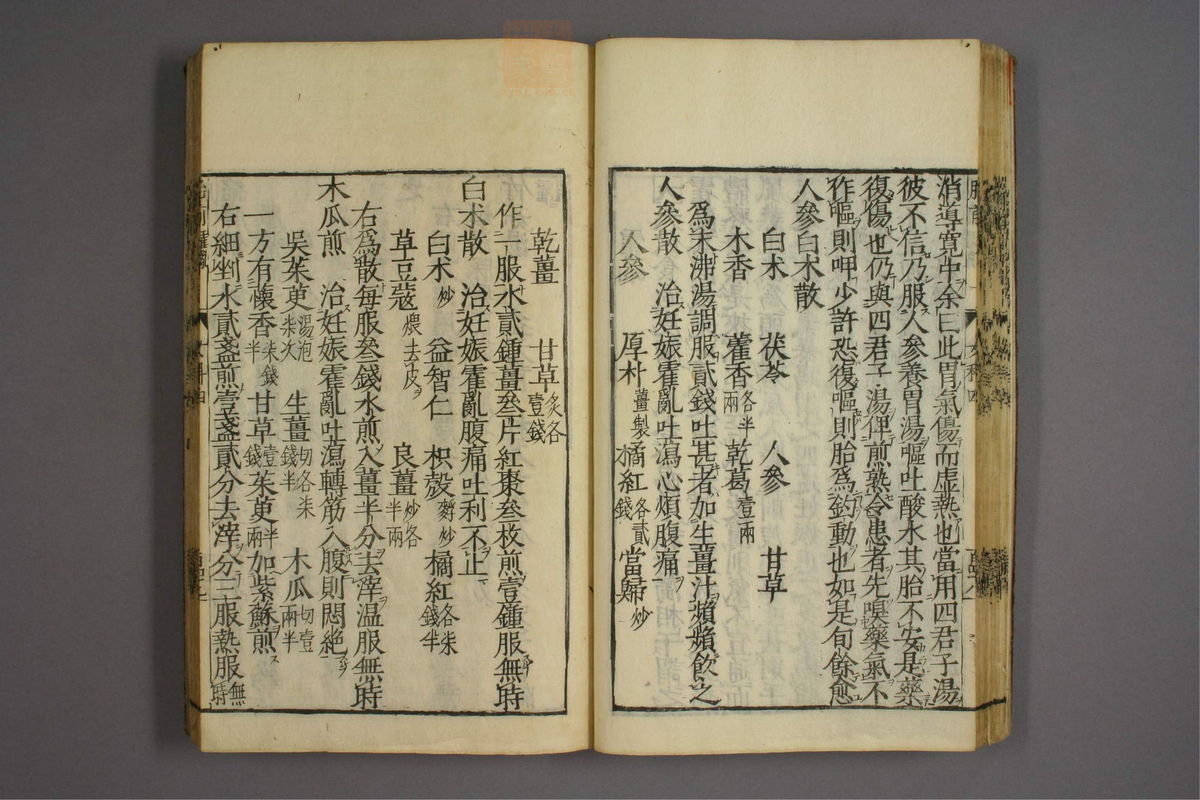 消導寛中余曰此胃氣傷而虚熱也當用四君子湯
彼不信乃服人參養胃湯嘔吐酸水其胎不安是藥
復傷也仍與四君子湯俾煎熟令患者先嗅藥氣不
作嘔則呷少許恐復嘔則胎爲鈞動也如是旬餘愈
人參白朮散
白朮 茯苓 人參 甘草
木香 藿香各半兩 乾葛壹兩
爲末沸湯調服貳錢吐甚者加生薑汁頻頻飲之
人參散 治妊娠霍亂吐瀉心煩腹痛
人參 厚朴薑製 橘紅各貳錢 當歸炒
乾薑 甘草炙各壹錢
作一服水貳鍾薑叁片紅棗叁枚煎壹鍾服無時
白朮散 治妊娠霍亂腹痛吐利不止
白朮炒 益智仁 枳殼麩炒 橘紅各柒錢半
草豆蔻煨去皮 良薑炒各半兩
右爲散每服叁錢水煎入薑半分去滓温服無時
木瓜煎 治妊娠霍亂吐瀉轉筋入腹則悶絶
吳茱萸湯泡柒次 生薑切各柒錢半 木瓜切壹兩半
一方有懷香柒錢半 甘草壹錢 茱萸半兩 加紫蘇煎
右細剉水貳盞煎壹盞貳分去滓分三服熱服無時